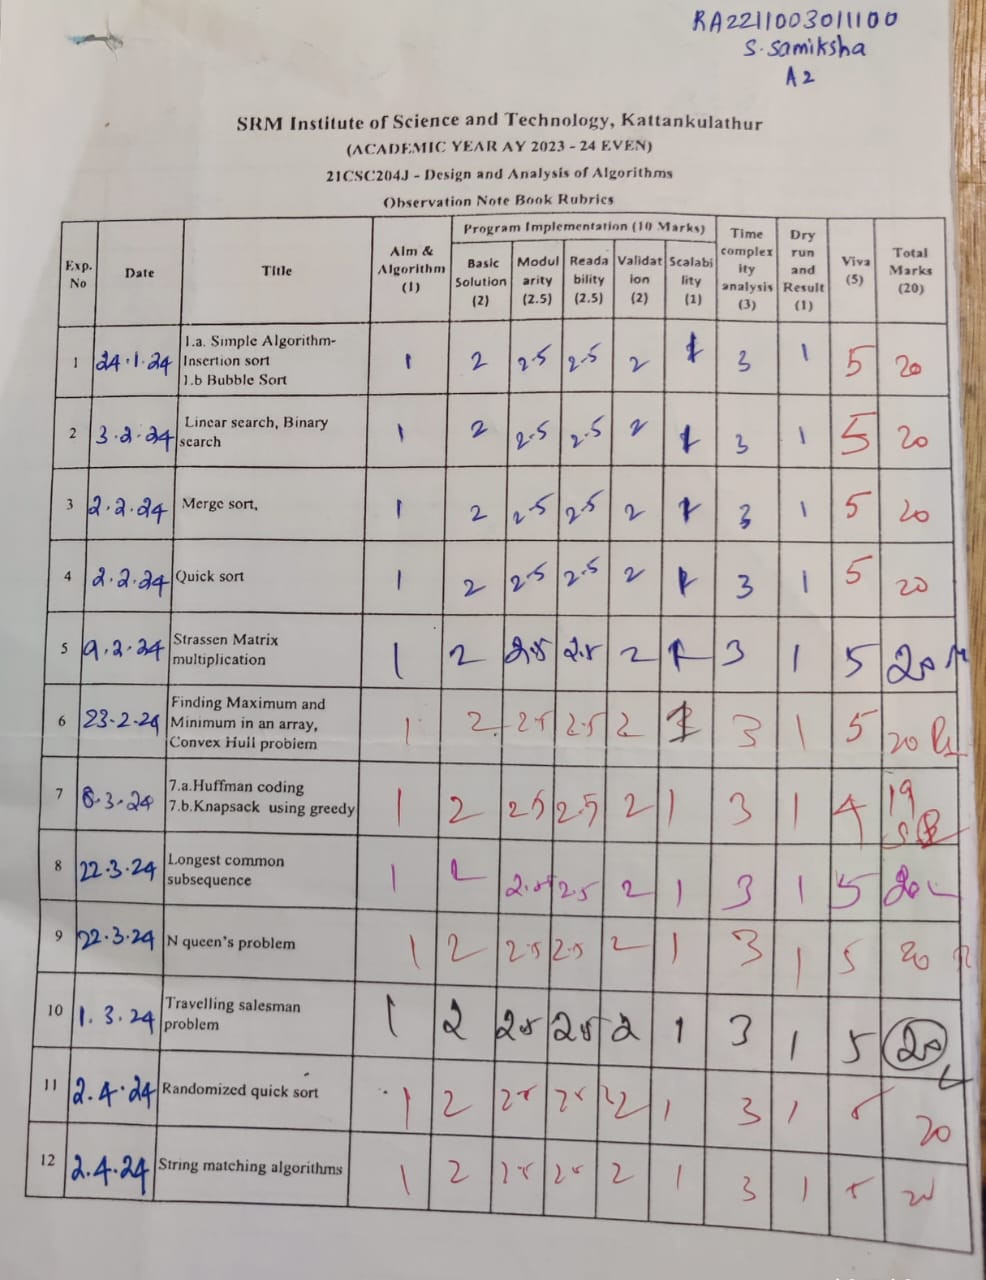 RA2211003011100
S. Samiksha
A2
SRM Institute of Science and Technology, Kattankulathur
(ACADEMIC YEAR AY 2023 - 24 EVEN)
21CSC204J - Design and Analysis of Algorithms
Observation Note Book Rubrics
Exp. No Date Title Aim & Algorithm (1) Program Implementation (10 Marks) Time complexity analysis (3) Dry run and Result (1) Viva (5) Total Marks (20)
Basic Solution (2) Modularity (2.5) Readability (2.5) Validation (2) Scalability (1)
1 24.1.24 1.a. Simple Algorithm-Insertion sort 1.b Bubble Sort 1 2 2.5 2.5 2 1 3 1 5 20
2 3.2.24 Linear search, Binary search 1 2 2.5 2.5 2 1 3 1 5 20
3 2.2.24 Merge sort, 1 2 2.5 2.5 2 1 3 1 5 20
4 2.2.24 Quick sort 1 2 2.5 2.5 2 1 3 1 5 20
5 9.2.24 Strassen Matrix multiplication 1 2 2.5 2.5 2 1 3 1 5 20
6 23-2-24 Finding Maximum and Minimum in an array, Convex Hull problem 1 2 2.5 2.5 2 1 3 1 5 20
7 8.3.24 7.a.Huffman coding 7.b.Knapsack using greedy 1 2 2.5 2.5 2 1 3 1 4 19
8 22.3.24 Longest common subsequence 1 2 2.5 2.5 2 1 3 1 5 20
9 22.3.24 N queen's problem 1 2 2.5 2.5 2 1 3 1 5 20
10 1.3.24 Travelling salesman problem 1 2 2.5 2.5 2 1 3 1 5 20
11 2.4.24 Randomized quick sort 1 2 2.5 2.5 2 1 3 1 5 20
12 2.4.24 String matching algorithms 1 2 2.5 2.5 2 1 3 1 5 20